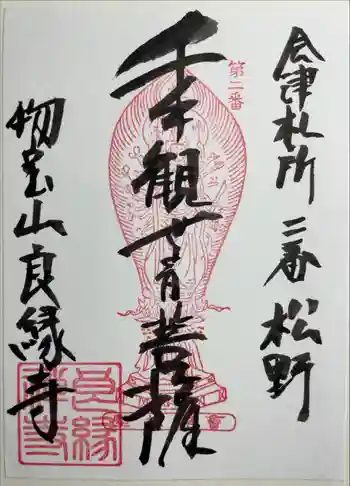 会津札所 二番 松野
第二番
千手観世音菩薩
物宝山良縁寺
良縁